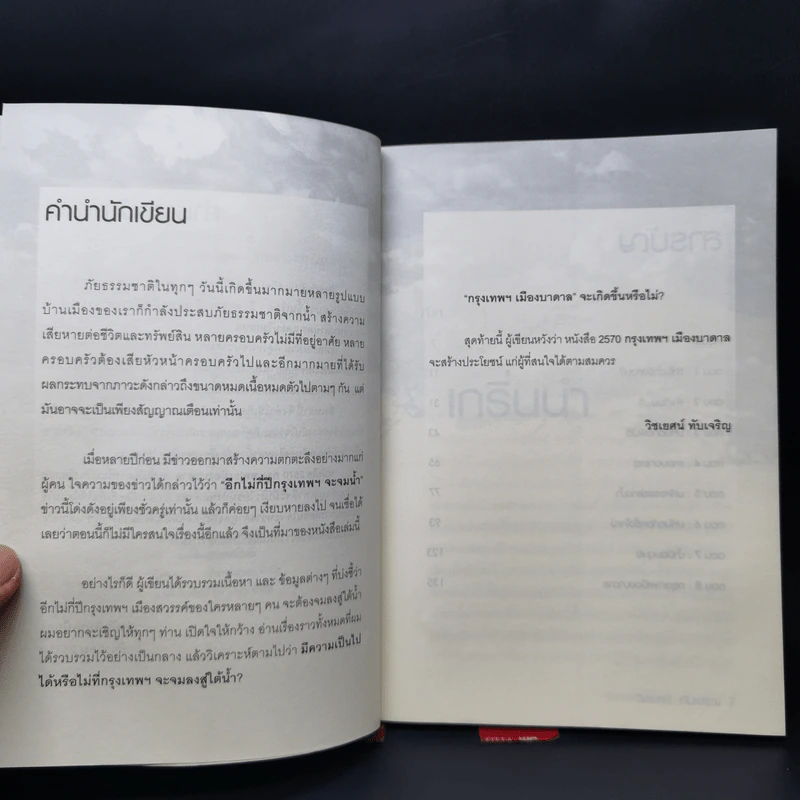 คำนำนักเขียน
ภัยธรรมชาติในทุกๆ วันนี้เกิดขึ้นมากมายหลายรูปแบบ
บ้านเมืองของเราก็กำลังประสบภัยธรรมชาติจากน้ำ สร้างความ
เสียหายต่อชีวิตและทรัพย์สิน หลายครอบครัวไม่มีที่อยู่อาศัย หลาย
ครอบครัวต้องเสียหัวหน้าครอบครัวไปและอีกมากมายที่ได้รับ
ผลกระทบจากภาวะดังกล่าวถึงขนาดหมดเนื้อหมดตัวไปตามๆ กัน แต่
มันอาจจะเป็นเพียงสัญญาณเตือนเท่านั้น
เมื่อหลายปีก่อน มีข่าวออกมาสร้างความตกตะลึงอย่างมากแก่
ผู้คน ใจความของข่าวได้กล่าวไว้ว่า "อีกไม่กี่ปีกรุงเทพฯ จะจมน้ำ"
ข่าวนี้โด่งดังอยู่เพียงชั่วครู่เท่านั้น แล้วก็ค่อยๆ เงียบหายลงไป จนเชื่อได้
เลยว่าตอนนี้ก็ไม่มีใครสนใจเรื่องนี้อีกแล้ว จึงเป็นที่มาของหนังสือเล่มนี้
อย่างไรก็ดี ผู้เขียนได้รวบรวมเนื้อหา และ ข้อมูลต่างๆ ที่บ่งชี้ว่า
อีกไม่กี่ปีกรุงเทพฯ เมืองสวรรค์ของใครหลายๆ คน จะต้องจมลงสู่ใต้น้ำ
ผมอยากจะเชิญให้ทุกๆ ท่าน เปิดใจให้กว้าง อ่านเรื่องราวทั้งหมดที่ผม
ได้รวบรวมไว้อย่างเป็นกลาง แล้ววิเคราะห์ตามไปว่า มีความเป็นไป
ได้หรือไม่ที่กรุงเทพฯ จะจมลงสู่ใต้น้ำ?
"กรุงเทพฯ เมืองบาดาล" จะเกิดขึ้นหรือไม่?
สุดท้ายนี้ ผู้เขียนหวังว่า หนังสือ 2570 กรุงเทพฯ เมืองบาดาล
จะสร้างประโยชน์ แก่ผู้ที่สนใจได้ตามสมควร
วิชเยศน์ ทับเจริญ